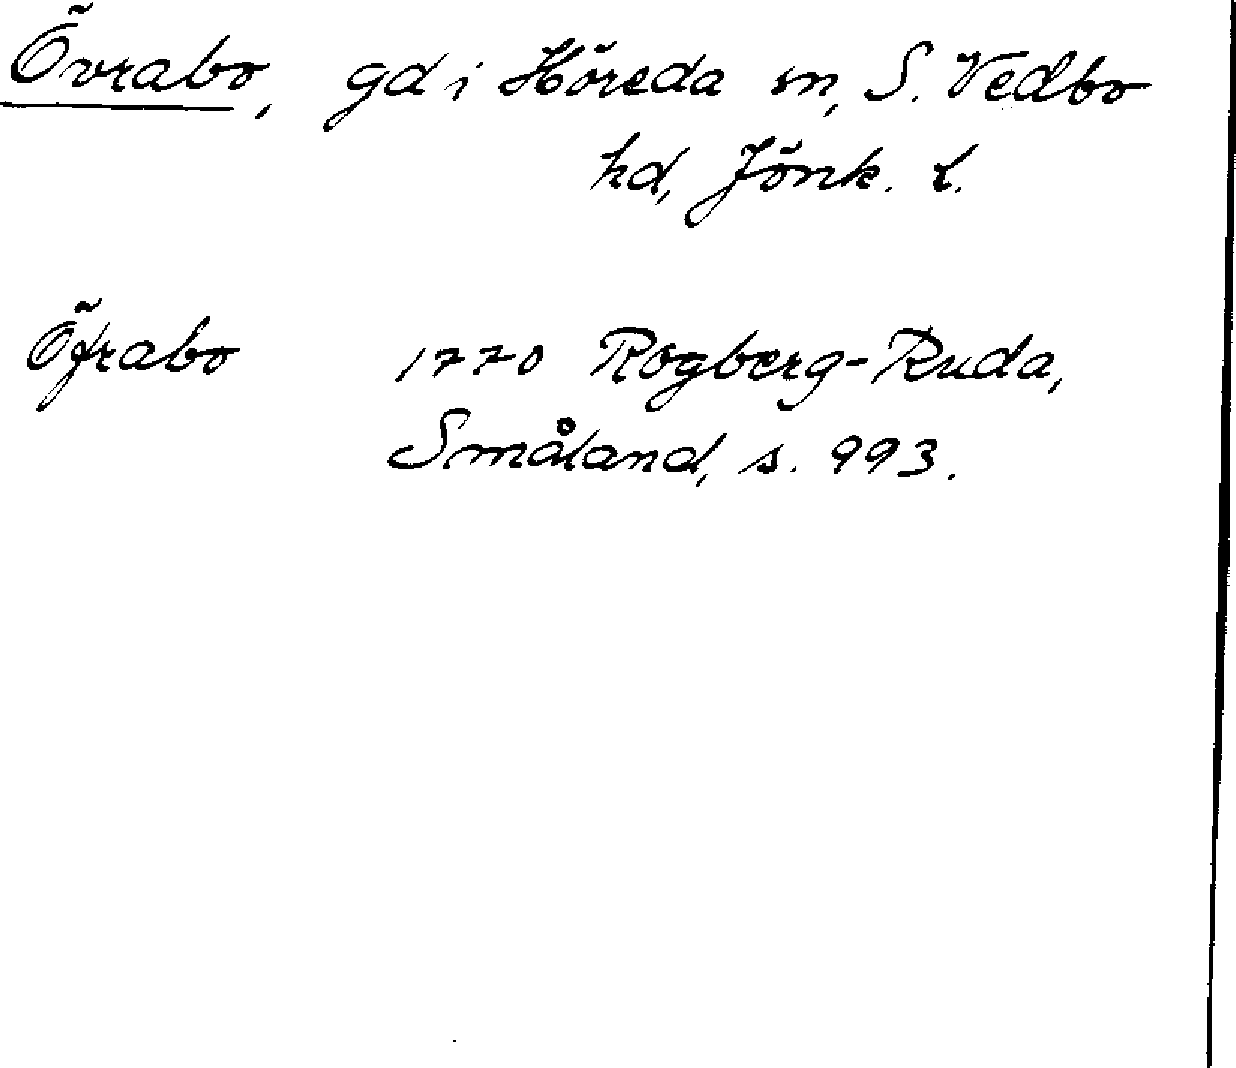 Övrabo, gd i Höreda sn, S. Vedbo
hd, Jönk. l.
Öfrabo 1770 Rogberg-Ruda,
Småland, s. 993.